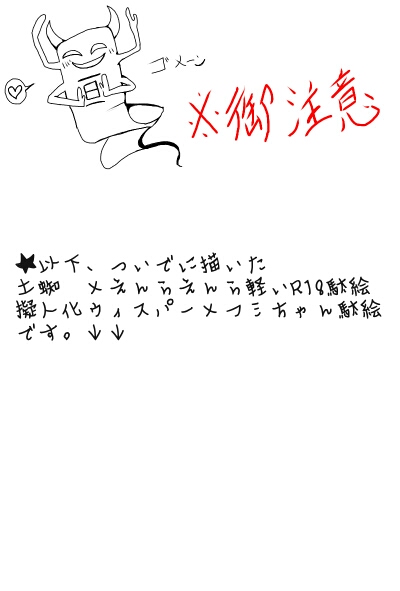 ゴメーン
※御注意
★以下、ついでに描いた
土蜘 ×えんらえんら軽いR18駄絵
擬人化ウィスパー×フミちゃん駄絵
です。↓↓